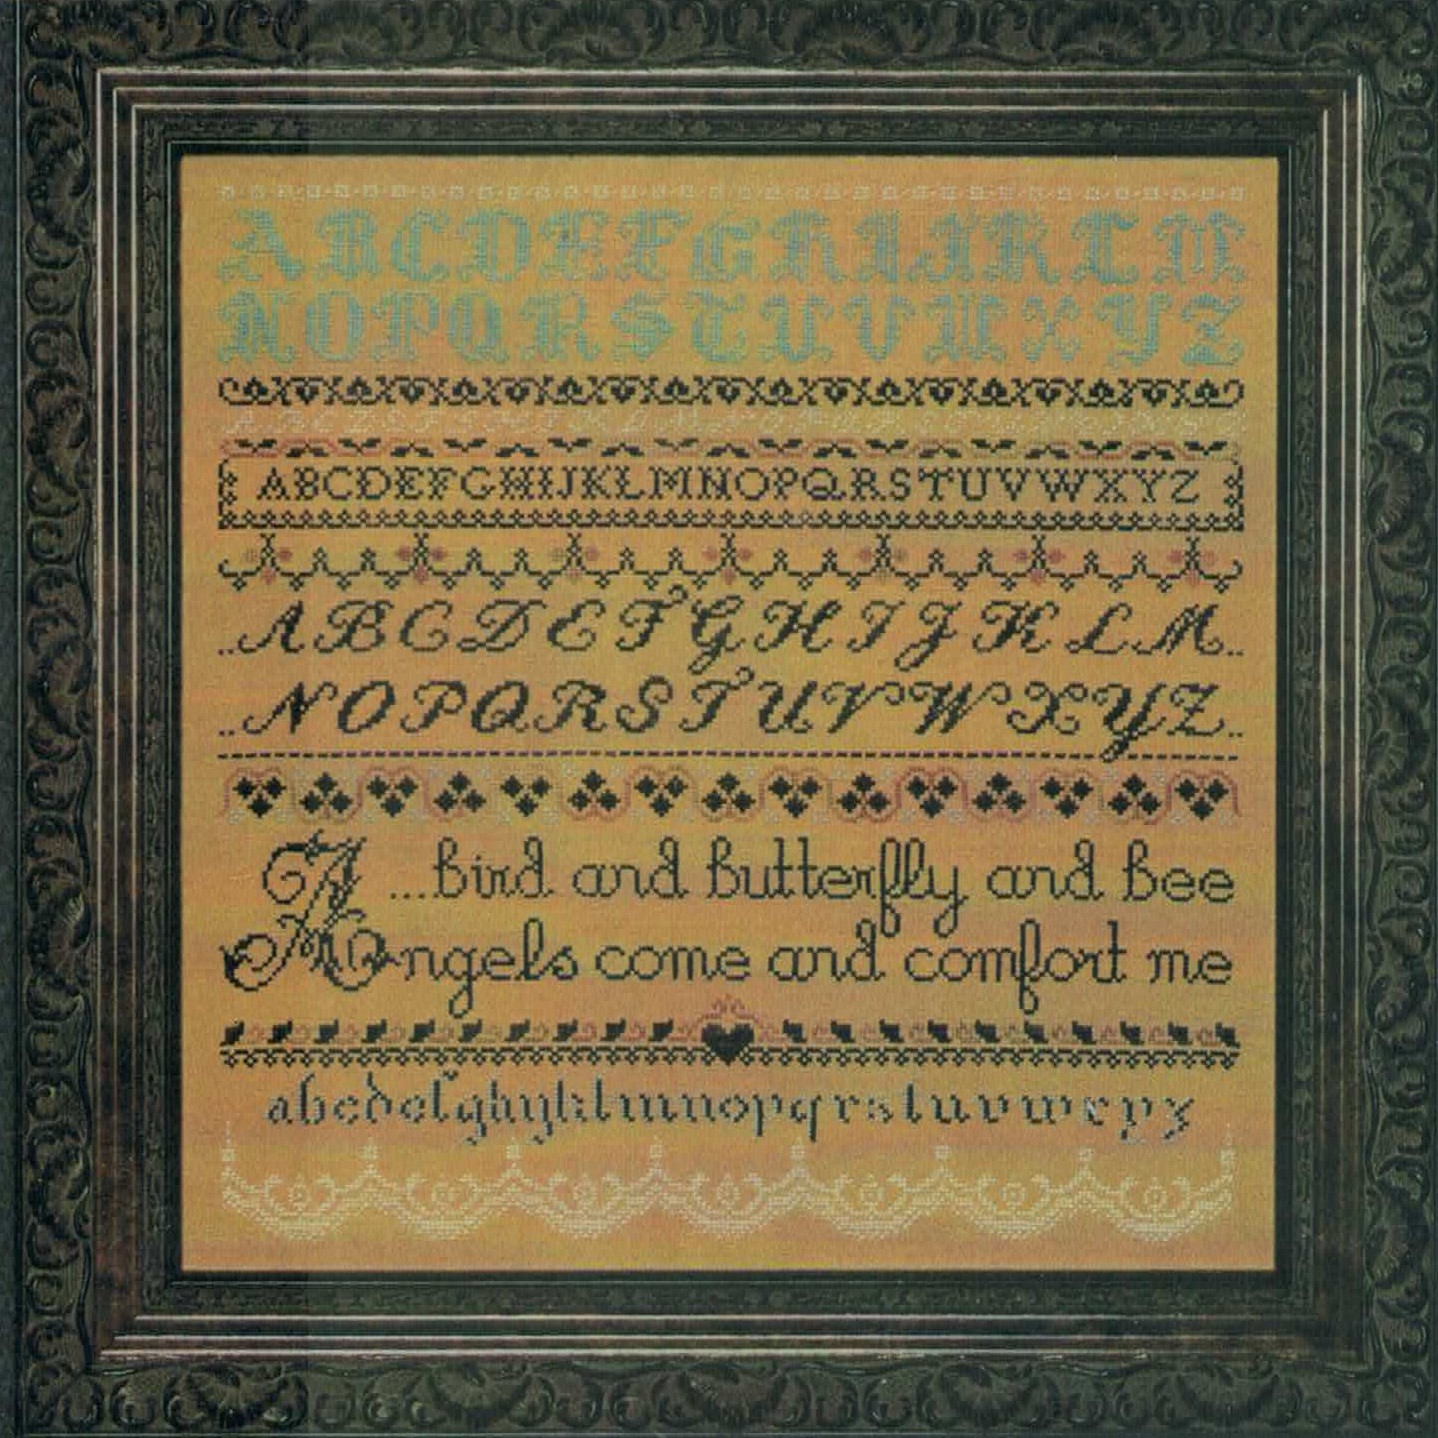 ABCDEFGHIJKLM
NOPQRSTUVWXYZ
ABCDEFGHIJKLMNOPQRSTUVWXYZ
..ABCDEFGHIJKLM..
..NOPQRSTUVWXYZ..
A...bird and butterfly and bee
Angels come and comfort me
abcdefghyklmnopqrstuvwxyz